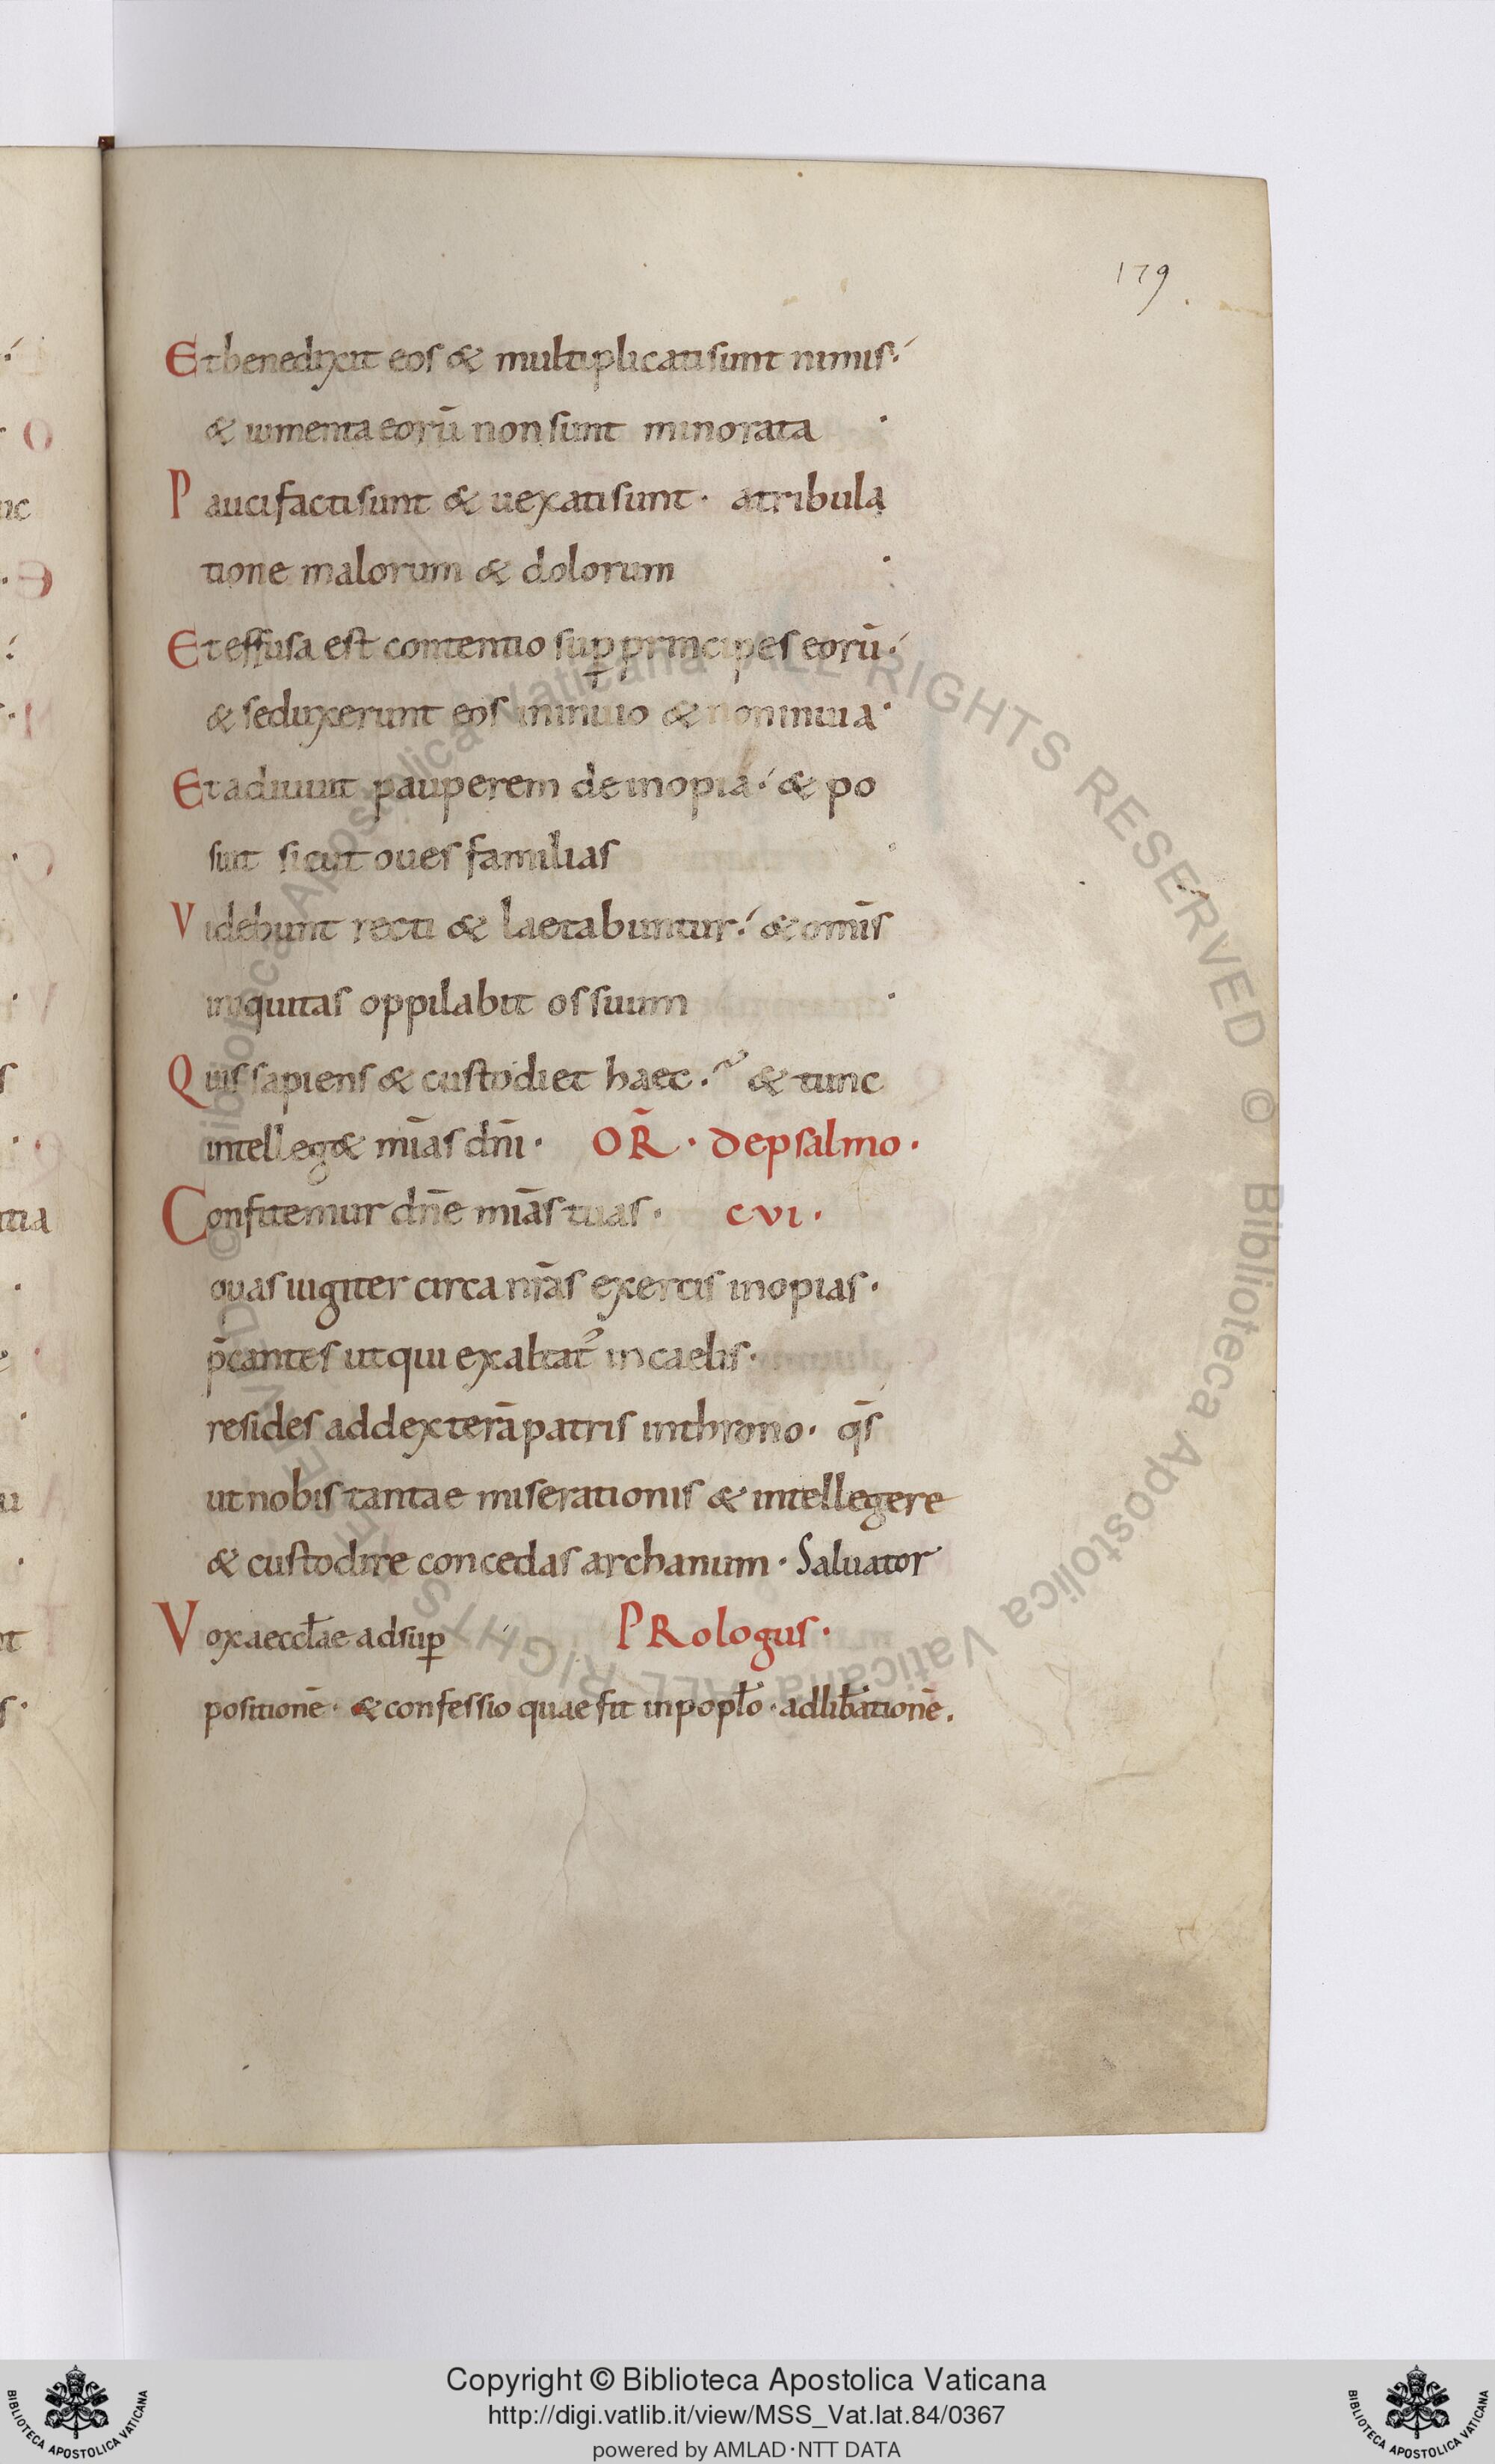 179
Et benedixit eos & multiplicati sunt nimis·
& iumenta eorū non sunt minorata ·
Pauci facti sunt & uexati sunt · a tribula
tione malorum & dolorum ·
Et effusa est contentio sup principes eorū·
& seduxerunt eos in inuio & non in uia·
Et adiuuit pauperem de inopia· & po
suit sicut oues familias ·
Videbunt recti & laetabuntur· & omīs
iniquitas oppilabit os suum ·
Quis sapiens & custodiet haec · & tunc
intelleg& mīas dnī · OR̄ · de psalmo ·
Confitemur dnē mīas tuas · cvi ·
quas iugiter circa nr̄as exercis inopias ·
p̄cantes ut qui exaltat᾽ in caelis ·
resides ad dexterā patris in throno · qs̄
ut nobis tantae miserationis & intellegere
& custodire concedas archanum · Saluator
Vox aeccl̄ae ad sup PRologus ·
positionē · & confessio quae fit in popl̄o · ad lib̄ationē .
© Biblioteca Apostolica Vaticana ALL RIGHTS RESERVED
© Biblioteca Apostolica Vaticana ALL RIGHTS RESERVED
Copyright © Biblioteca Apostolica Vaticana
http://digi.vatlib.it/view/MSS_Vat.lat.84/0367
powered by AMLAD·NTT DATA
BIBLIOTECA APOSTOLICA VATICANA
BIBLIOTECA APOSTOLICA VATICANA